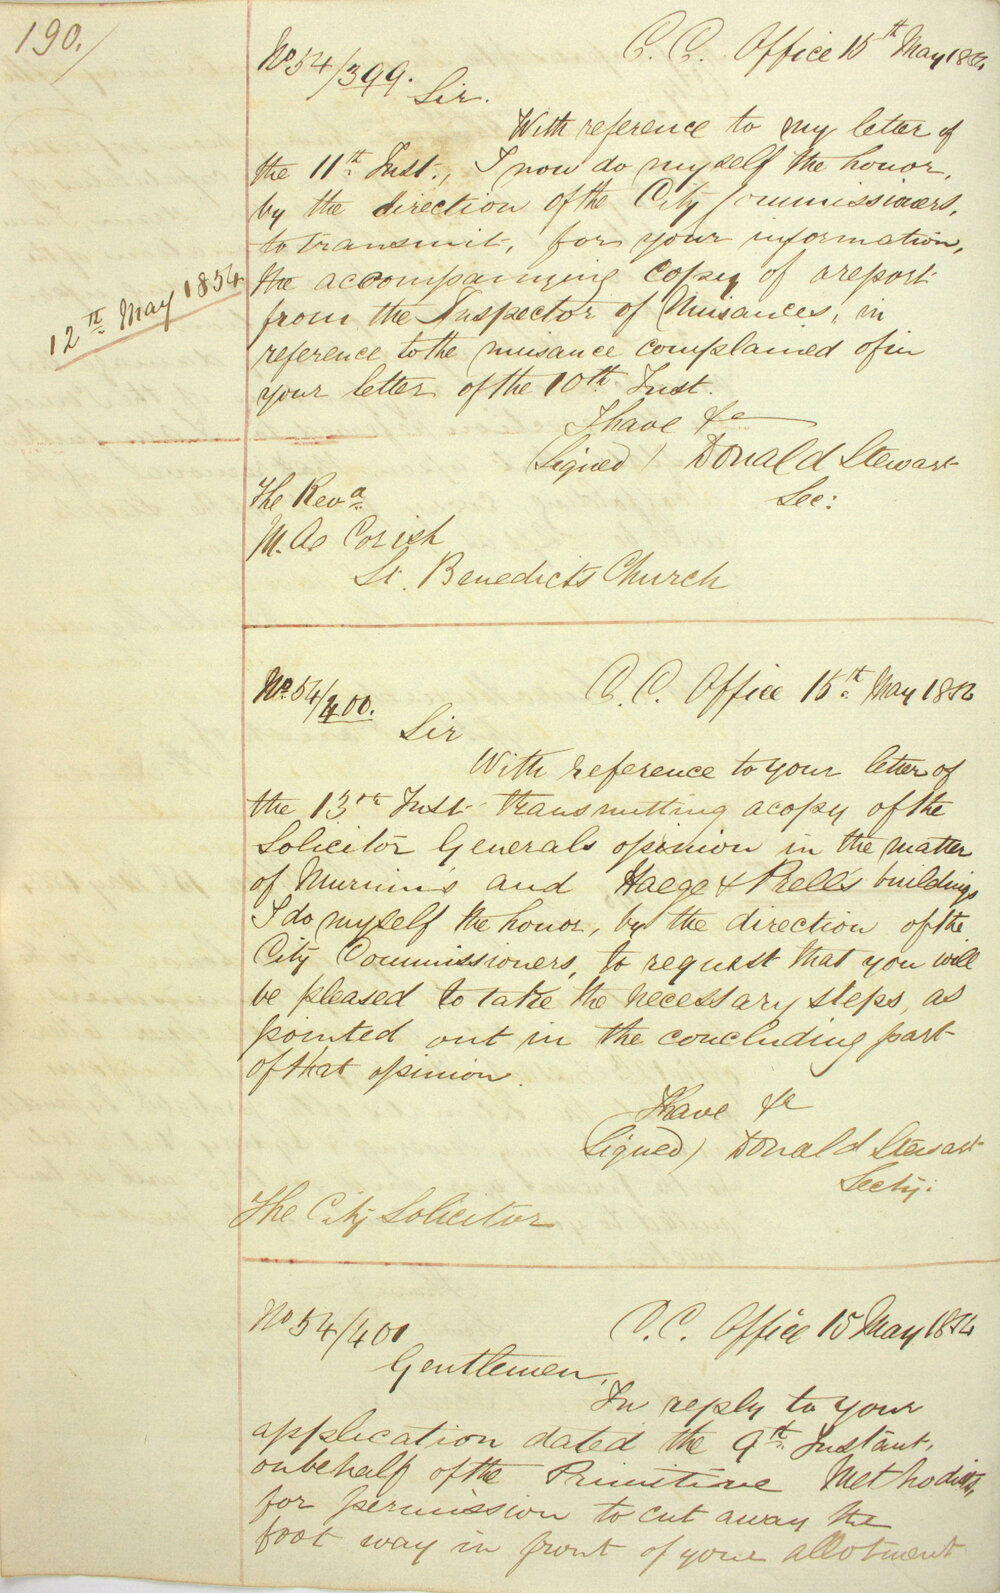 190.
No 54/399. C. C. Office 15th May 1854
Sir.
With reference to my letter of
the 11th Inst., I now do myself the honor,
by the direction of the City Commissioners,
to transmit, for your information,
12th May 1854
the accompanying copy of a report
from the Inspector of Nuisances, in
reference to the nuisance complained of in
your letter of the 10th Inst.
I have &c
(Signed) Donald Stewart
Sec:
The Revd
M. A. Corish
St. Benedicts Church
No. 54/400. C. C. Office 15th May 1854
Sir
With reference to your letter of
the 13th Inst transmitting a copy of the
Solicitor Generals opinion in the matter
of Murnin's and Haege & Prell's buildings
I do myself the honor, by the direction of the
City Commissioners, to request that you will
be pleased to take the necessary steps, as
pointed out in the concluding part
of that opinion.
I have &c
(Signed) Donald Stewart
Secty:
The City Solicitor
No 54/401 C. C. Office 15 May 1854
Gentlemen,
In reply to your
application dated the 9th Instant,
on behalf of the Primitive Methodists,
for permission to cut away the
foot way in front of your allotment